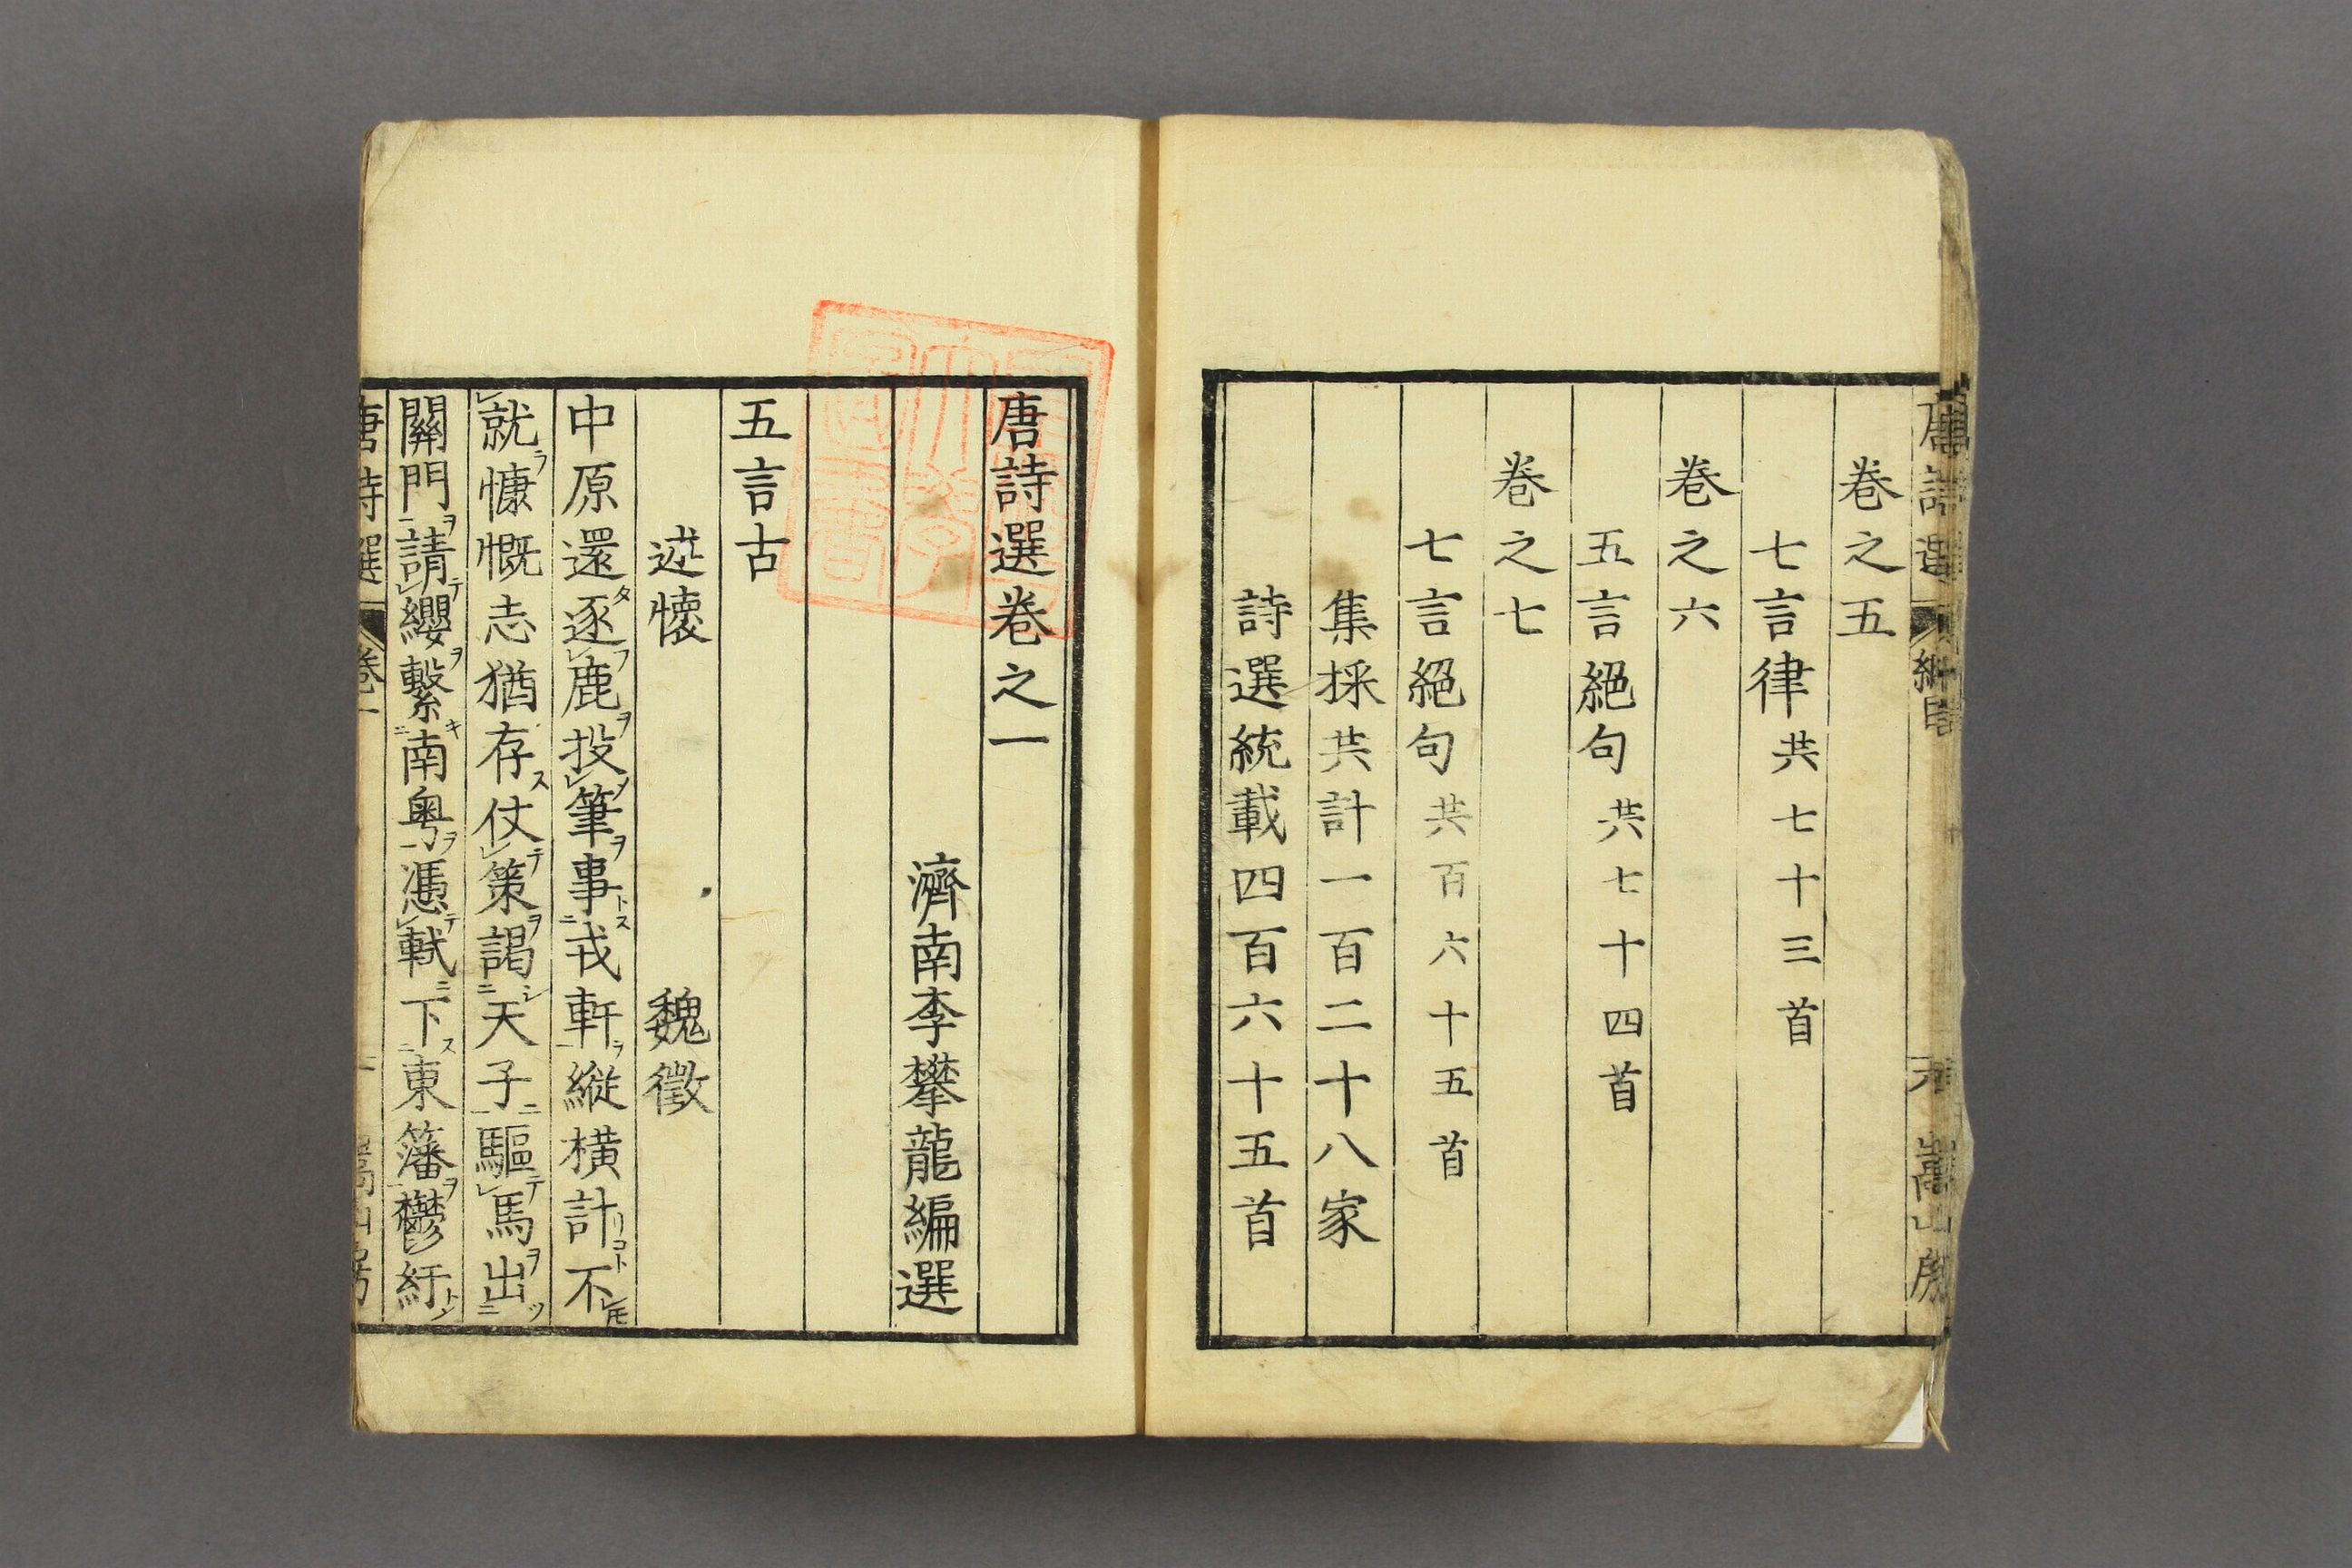 卷之五
七言律共七十三首
卷之六
五言絕句共七十四首
卷之七
七言絕句共百六十五首
集採共計一百二十八家
詩選統載四百六十五首
唐詩選卷之一
濟南李攀龍編選
五言古
述懷 魏徵
中原還逐鹿投筆事戎軒縱橫計不
就慷慨志猶存仗策謁天子驅馬出
關門請纓繫南粵憑軾下東藩鬱紆
唐詩選 卷一 嵩山房